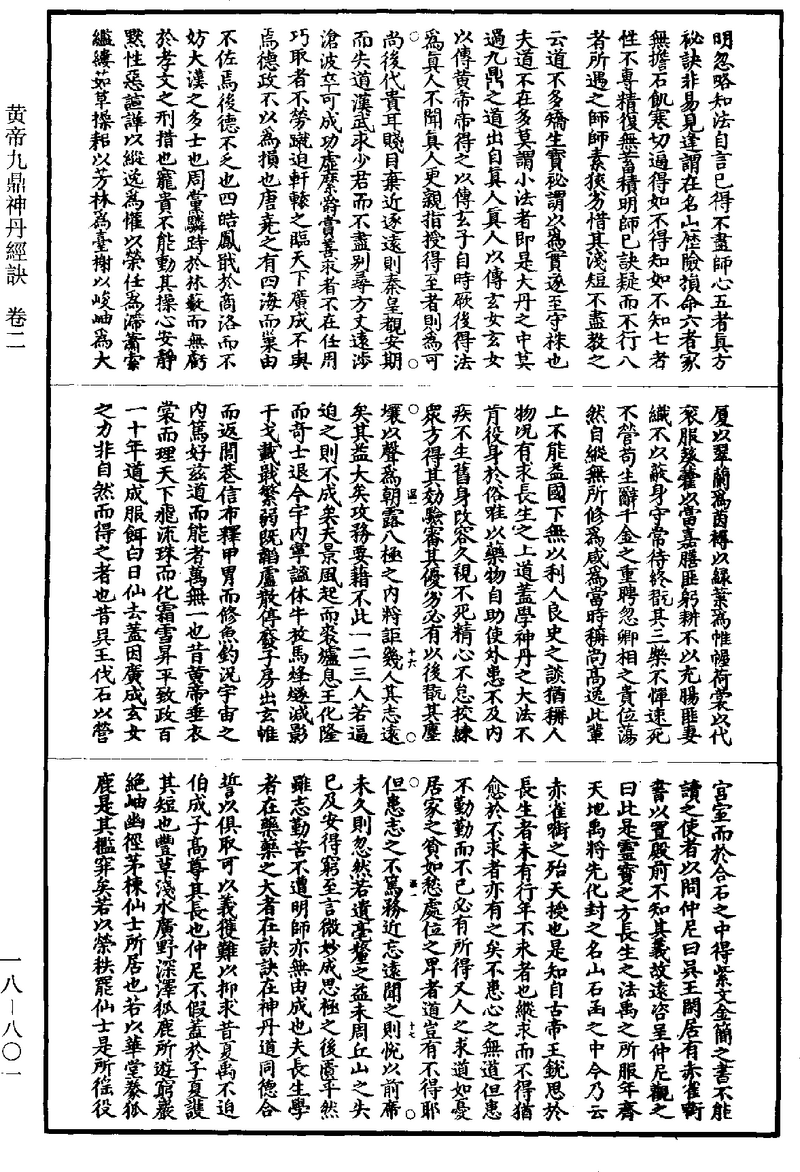 黄帝九鼎神丹經訣　卷二
一八—八〇一
明忽略知法自言已得不盡師心五者真方
秘訣非易見逢謂在名山歷險損命六者家
無擔石飢寒切過得如不得知如不知七者
性不專精復無蓄積明師已訣疑而不行八
者所遇之師師素狹劣惜其淺短不盡教之
云道不多矯生寶秘謂以為實遂至守株也
夫道不在多莫謂小法者即是大丹之中莫
過九鼎之道出自真人真人以傳玄女玄女
以傳黄帝帝得之以傳玄子自時厥後得法
為真人不聞真人更親指授得至者則為可
尚後代貴耳賤目棄近逐遠則秦皇覩安期
而失道漢武求少君而不盡别尋方丈遠涉
滄波卒可成功虛縻爵賞善求者不在任用
巧取者不勞蹴迫軒轅之臨天下廣成不與
焉德政不以為損也唐堯之有四海而巢由
不佐焉後德不乏也四皓鳳戢於商洛而不
妨大漢之多士也周黨麟跱於林藪而無虧
於孝文之刑措也寵貴不能動其操心安靜
黙性惡諠譁以縱逸為懽以榮任為滯蕭索
繿縷茹草操耜以芳林為臺榭以峻岫為大
廈以翠蘭為茵褥以緑葉為帷幄荷裳以代
衮服藜藿以當嘉膳匪躬耕不以充腸匪妻
織不以蔽身守常待終翫其三樂不憚速死
不營苟生辭千金之重聘忽卿相之貴位蕩
然自縱無所修為咸為當時稱尚高逸此輩
上不能益國下無以利人良史之談猶稱人
物况有求長生之上道蓋學神丹之大法不
肯役身於俗唯以藥物自助使外患不及内
疾不生舊身改容久視不死精心不怠挍練
衆方得其効驗審其優劣必有以後翫其塵
壤以聲為朝露八極之内將詎幾人其志遠
矣其益大矣攻務要藉不此一二三人若逼
迫之則不成矣夫景風起而裘爐息王化隆
而奇士退今宇内寧謐休牛放馬烽燧滅影
干戈載戢繁弱既韜盧散停廢子房出玄帷
而返閭巷信布釋甲冑而修魚釣况宇宙之
内篤好兹道而能者萬無一也昔黄帝垂衣
裳而理天下飛流珠而化霜雪昇平致政百
一十年道成服餌白日仙去蓋因廣成玄女
之力非自然而得之者也昔吳王伐石以營
宫室而於合石之中得紫文金簡之書不能
讀之使者以問仲尼曰吳王閑居有赤雀銜
書以置殿前不知其義故遠咨呈仲尼觀之
曰此是靈寶之方長生之法禹之所服年齊
天地禹將先化封之名山石函之中今乃云
赤雀銜之殆天授也是知自古帝王銳思於
長生者未有行年不來者也縱求而不得猶
愈於不求者亦有之矣不患心之無道但患
不勤勤而不已必有所得又人之求道如憂
居家之貧如愁處位之卑者道豈有不得耶
但患志之不篤務近忘遠聞之則悅以前席
未久則忽然若遺毫釐之益未周丘山之失
已及安得窮至言微妙成思極之後匱乎然
雖志勤苦不遭明師亦無由成也夫長生學
者在藥藥之大者在訣訣在神丹道同德合
誓以俱取可以義獲難以抑求昔夏禹不迫
伯成子高尊其長也仲尼不假蓋於子夏護
其短也豐草淺水廣野深澤狐鹿所遊窮巖
絶岫幽徑茅棟仙士所居也若以華堂豢狐
鹿是其檻穽矣若以榮秩罷仙士是所徭役